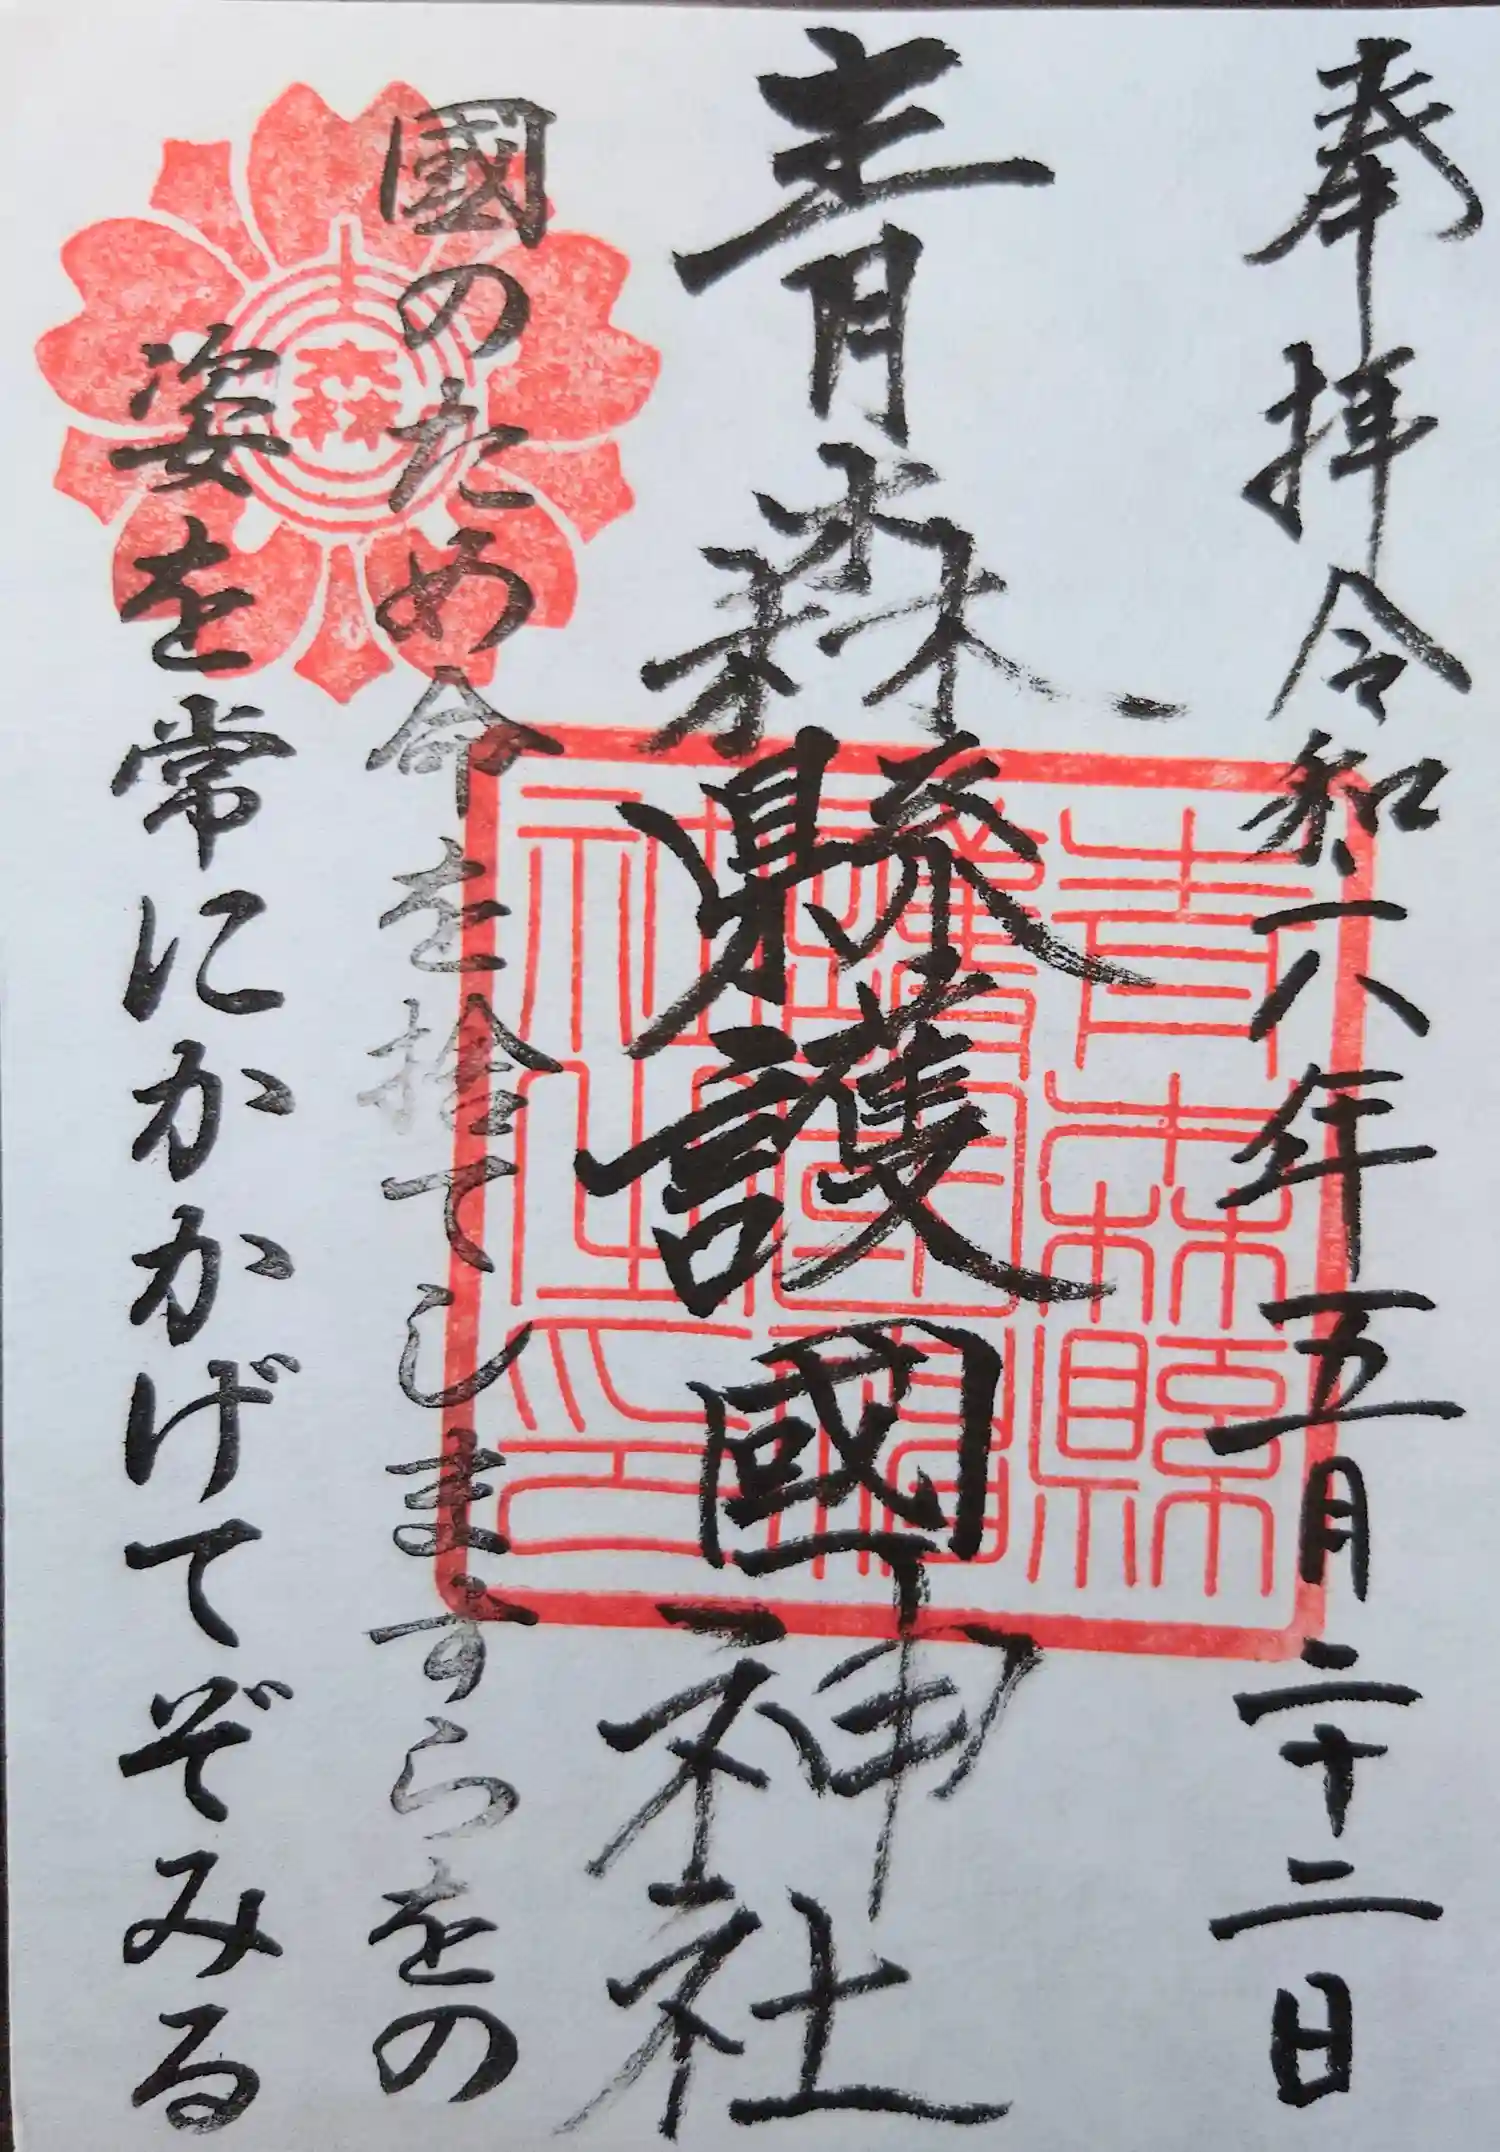 奉拝 令和六年五月二十二日
青森縣護國神社
國のため命を捨てしますらをの
姿を常にかかげてぞみる
森